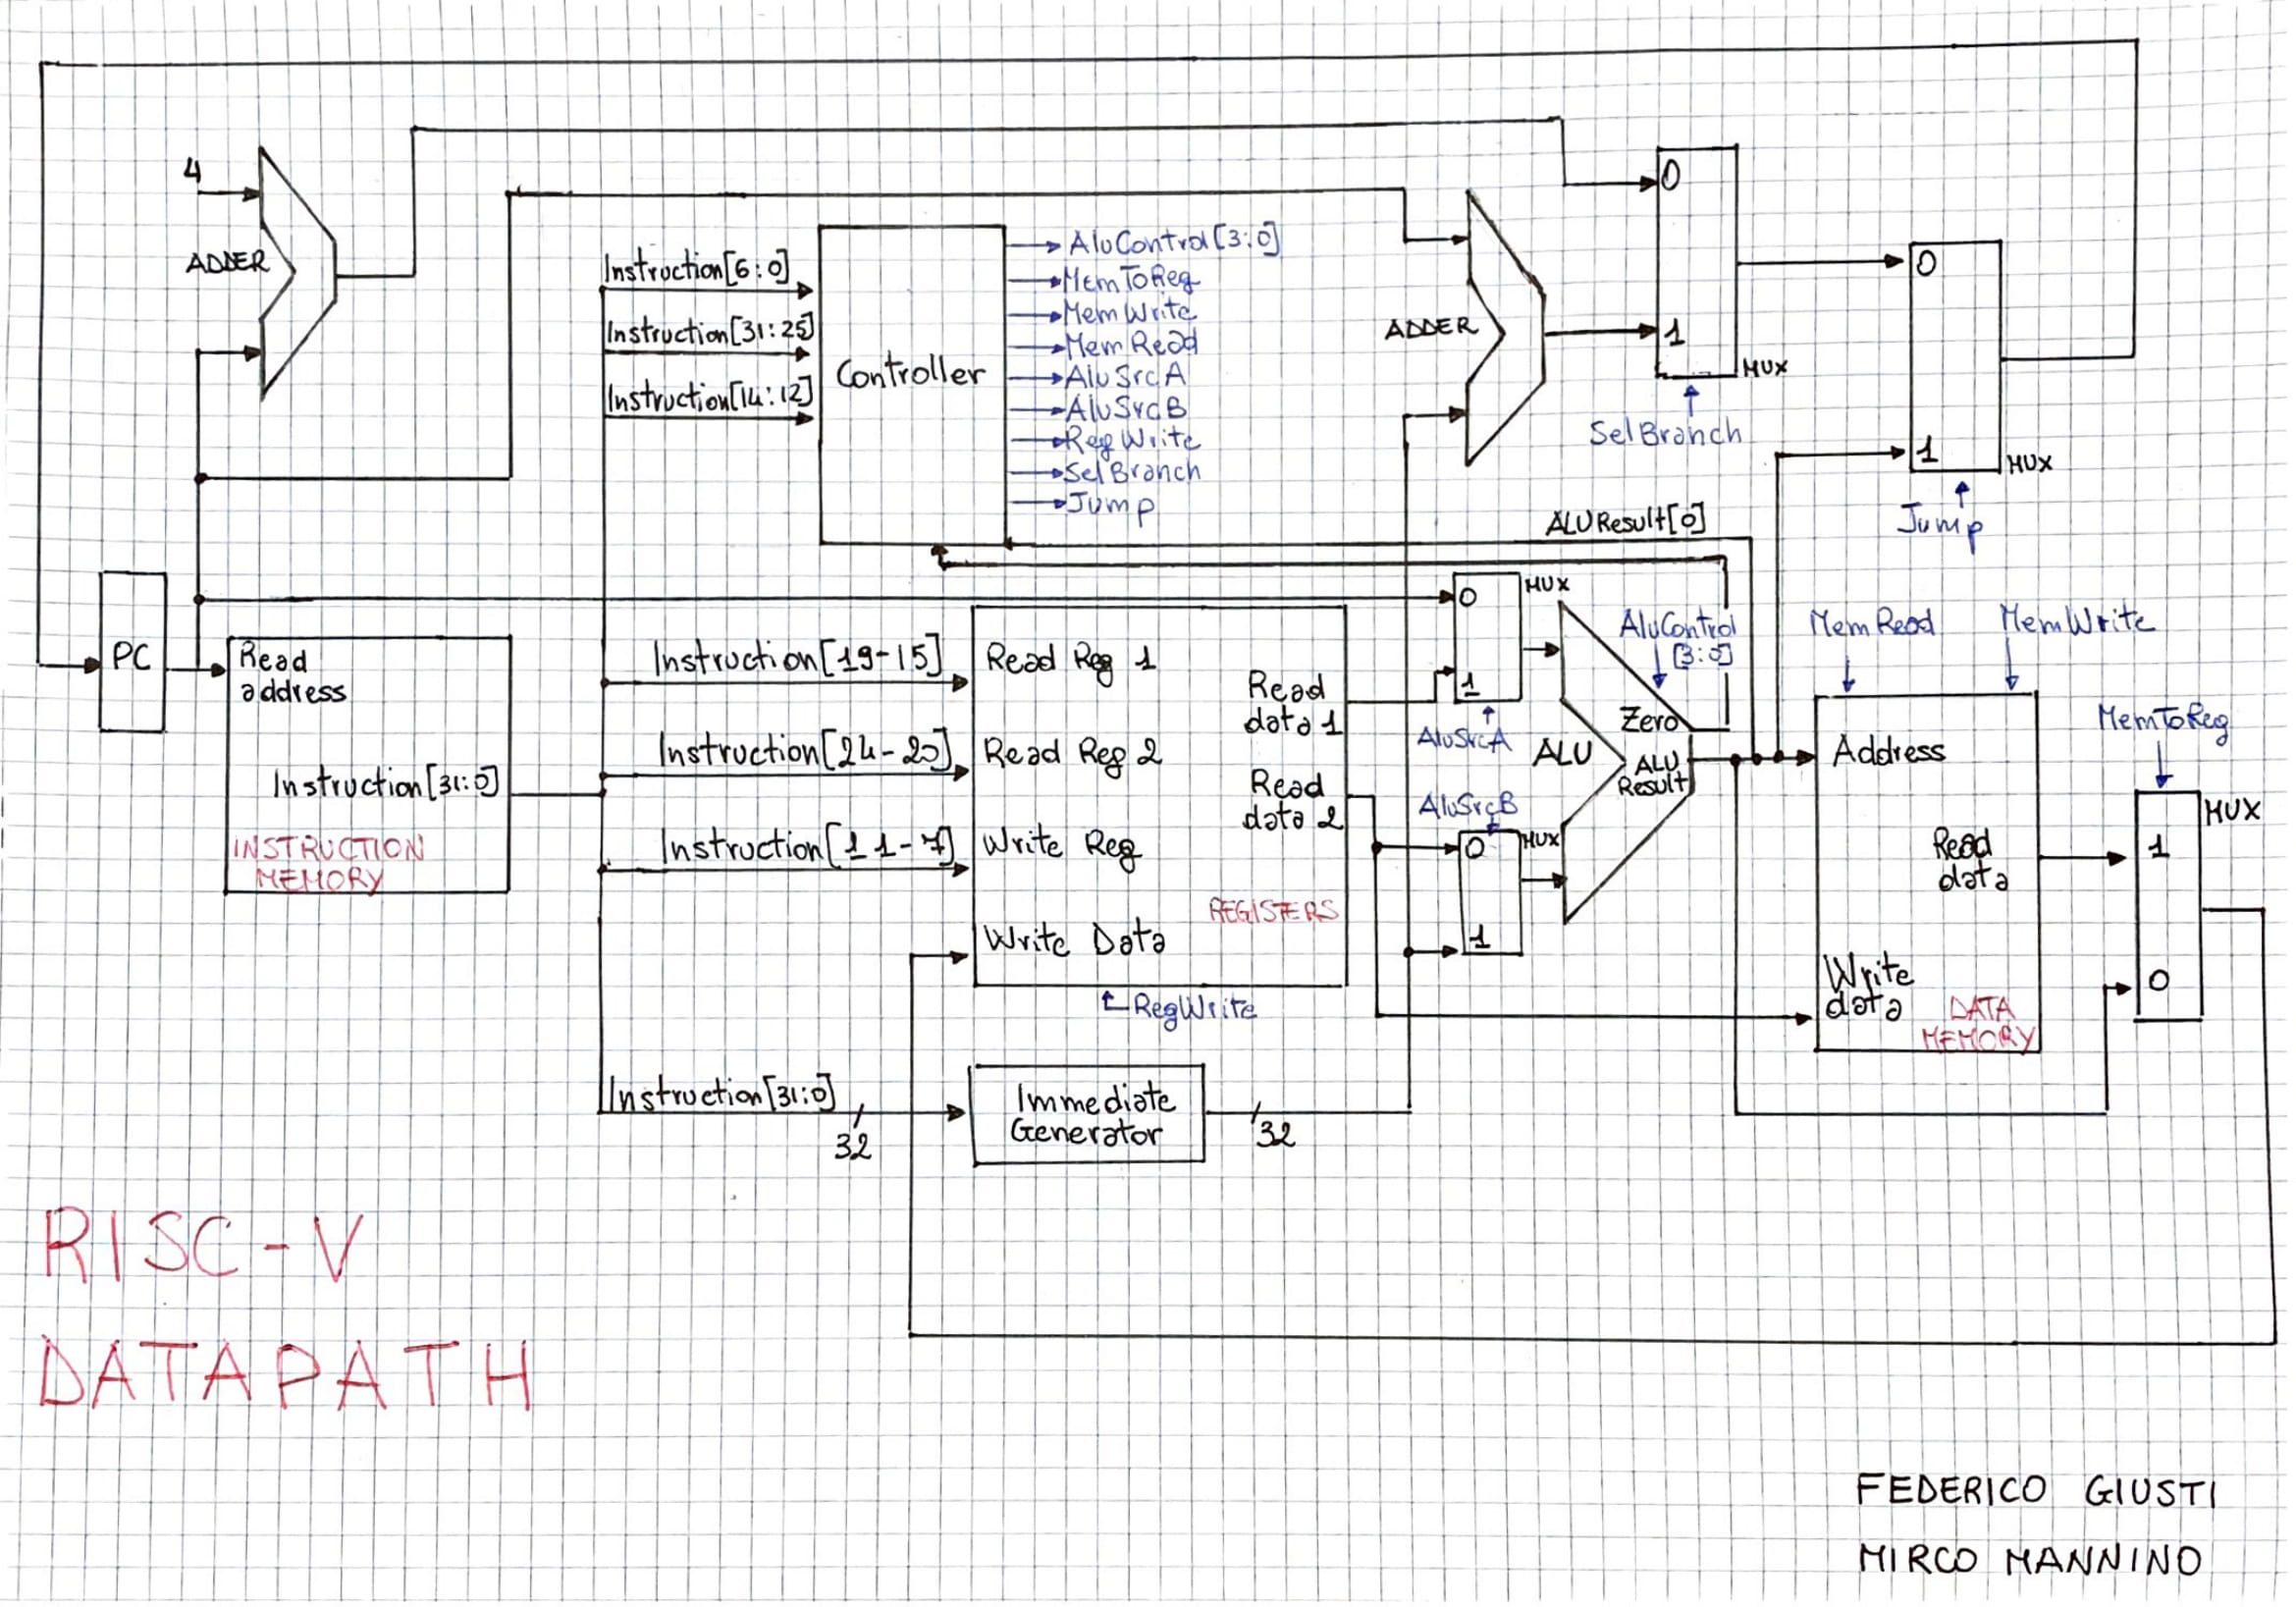 4
ADDER
Instruction[6:0]
Instruction[31:25]
Instruction[14:12]
Controller
AluControl[3:0]
MemToReg
MemWrite
MemRead
AluSrcA
AluSrcB
RegWrite
SelBranch
Jump
ADDER
0
1
MUX
SelBranch
0
1
MUX
Jump
ALUResult[0]
PC
Read
address
Instruction[31:0]
INSTRUCTION
MEMORY
Instruction[19-15]
Instruction[24-20]
Instruction[11-7]
Read Reg 1
Read Reg 2
Write Reg
Write Data
Read
data 1
Read
data 2
REGISTERS
RegWrite
0
1
MUX
AluSrcA
AluSrcB
0
1
MUX
ALU
AluControl
[3:0]
Zero
ALU
Result
MemRead
MemWrite
Address
Read
data
Write
data
DATA
MEMORY
MemToReg
MUX
1
0
Instruction[31:0]
32
Immediate
Generator
32
RISC-V
DATAPATH
FEDERICO GIUSTI
MIRCO MANNINO